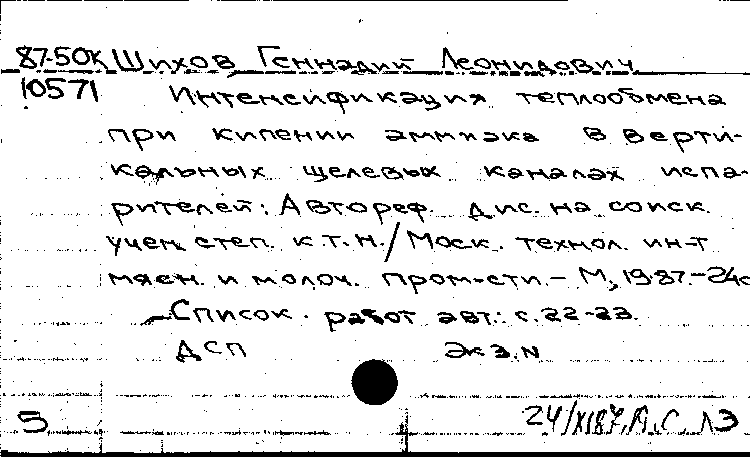 87-50К Шихов Геннадий Леонидович
10571 Интенсификация теплообмена
при кипении аммиака в верти-
кальных щелевых каналах испа-
рителей: Автореф. дис. на соиск.
учен. степ. к.т.н./Моск. технол. ин-т
мясн. и молоч. пром-сти.- М., 1987.-24с
Список. работ авт.: с.22-23.
ДСП Экз.N
5 24/XI87, А.С. ЛЭ